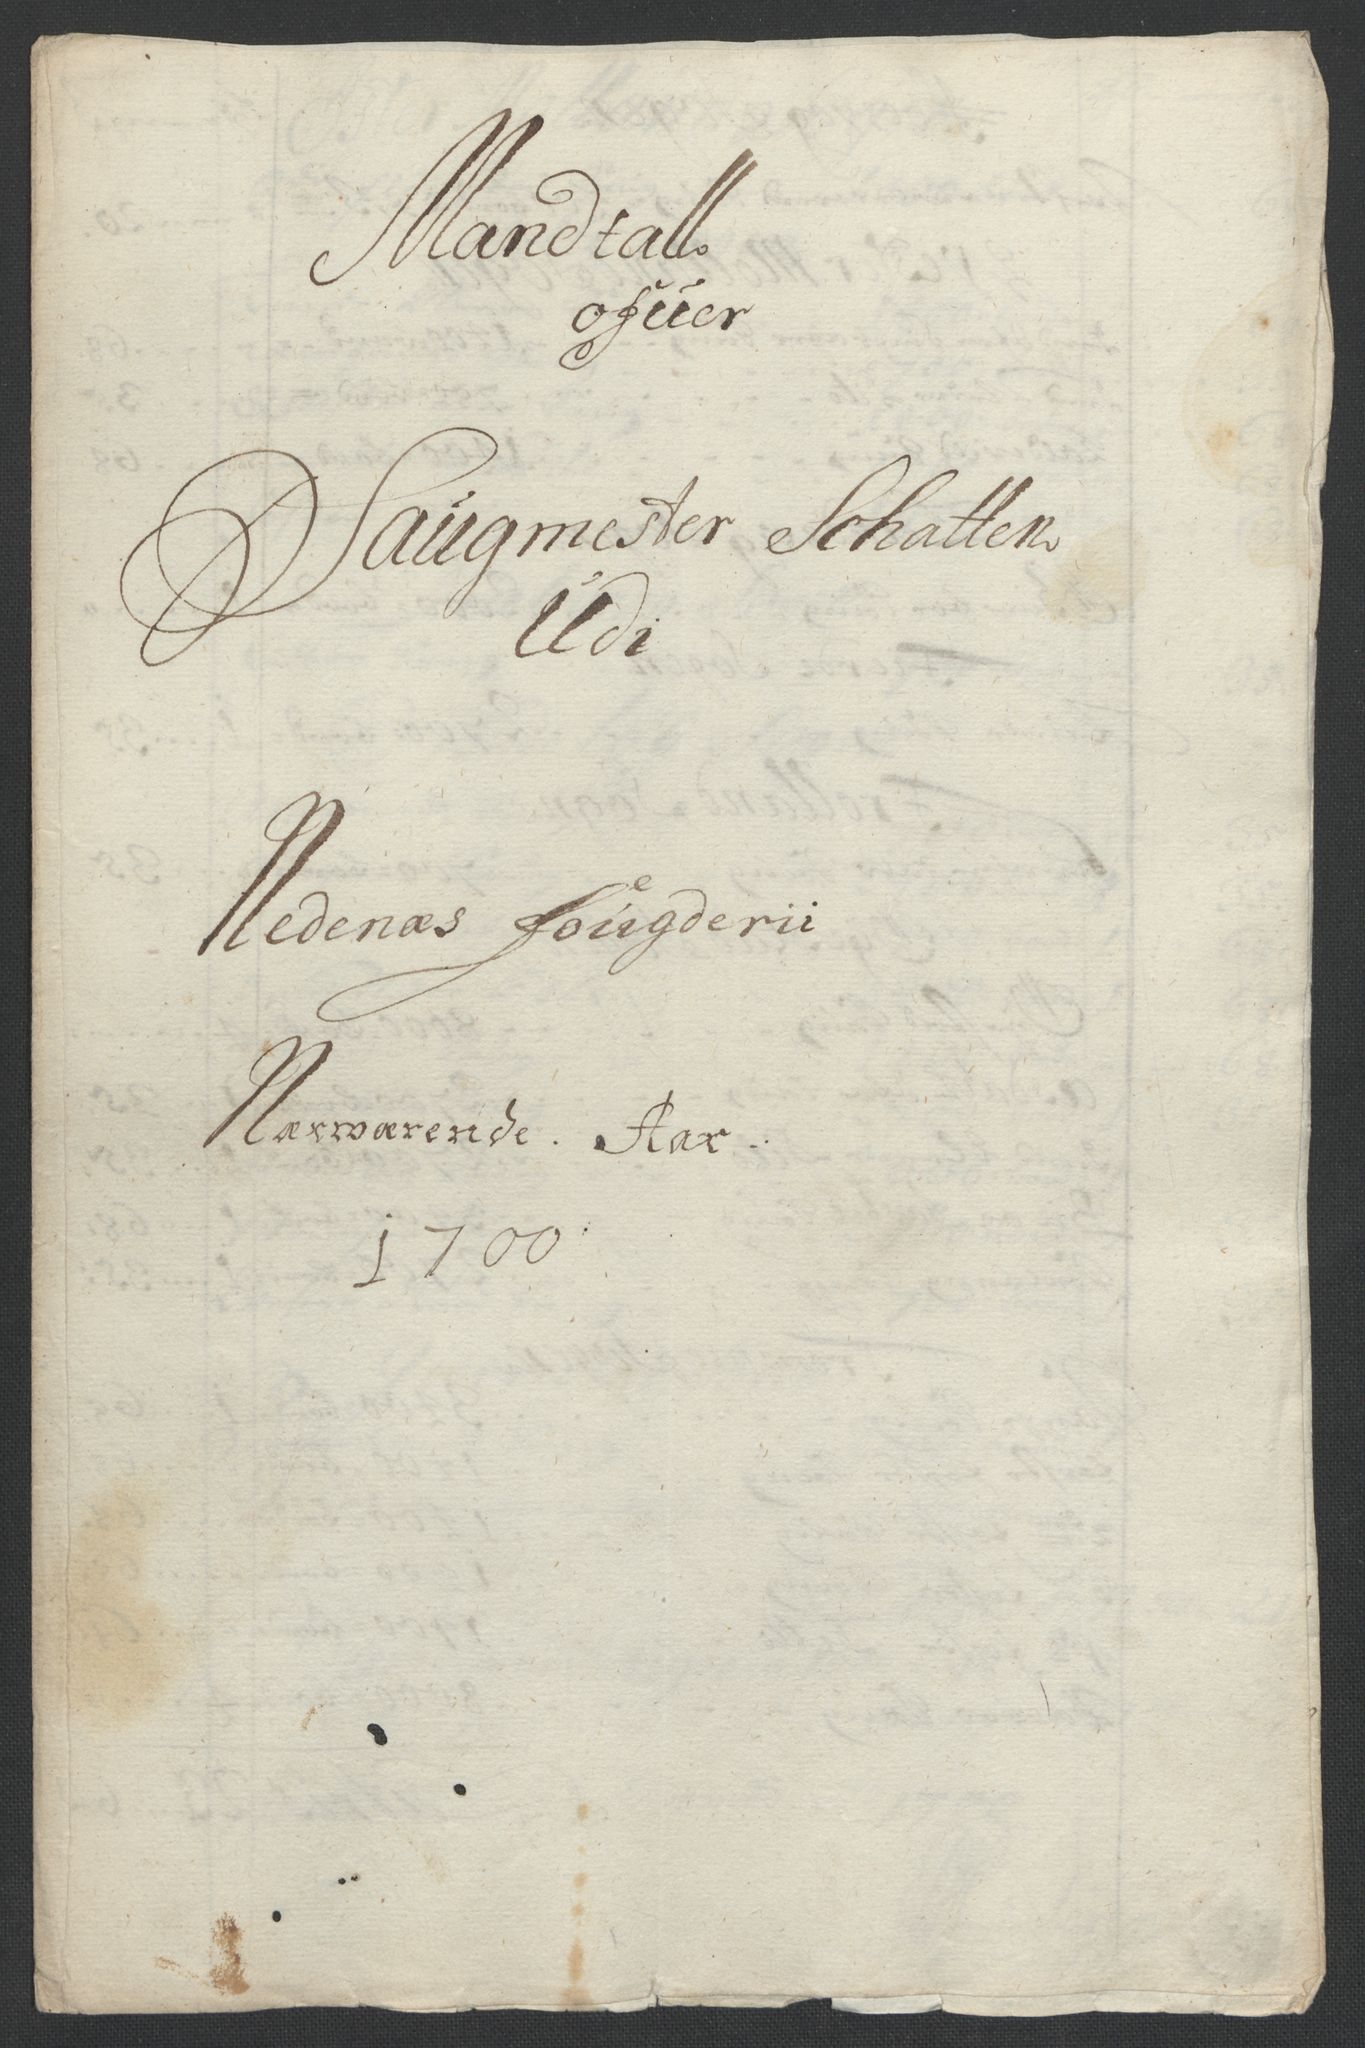 Mandtall
ofuer
Saugmester Schatten
Udi
Nedenæs fougderii
Nærwærende. Aar.
1700